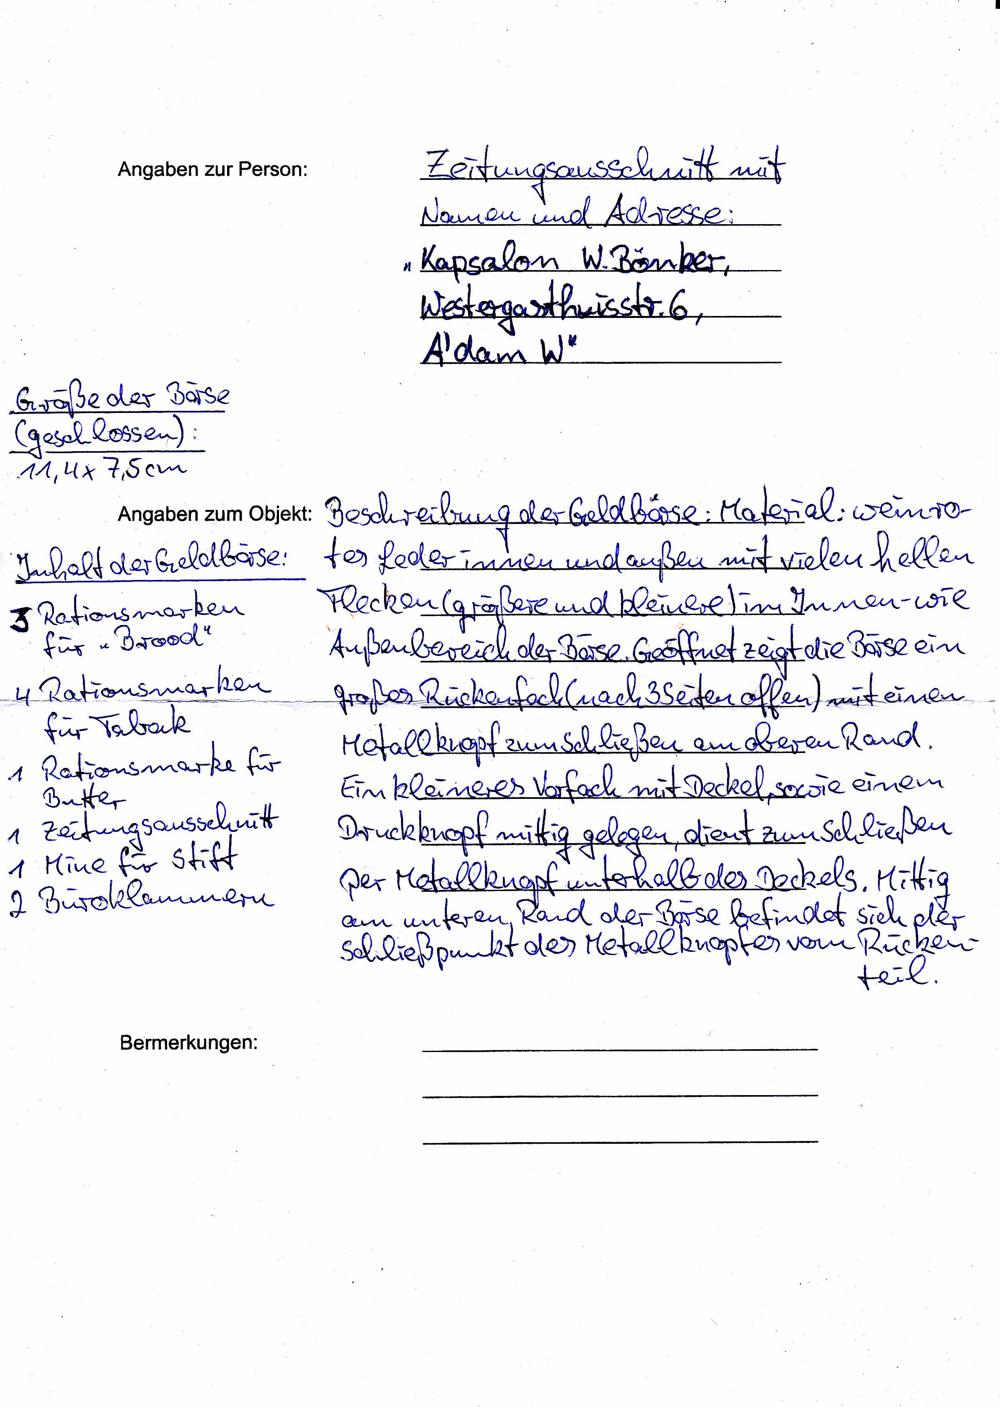 Angaben zur Person:
Zeitungsausschnitt mit
Namen und Adresse:
„Kapsalon W. Bönker,
Westergasthuisstr. 6,
A'dam W"
Größe der Börse
(geschlossen):
11,4 x 7,5 cm
Angaben zum Objekt:
Beschreibung der Geldbörse: Material: weinro-
tes Leder innen und außen mit vielen hellen
Flecken (größere und kleinere) im Innen- wie
Außenbereich der Börse. Geöffnet zeigt die Börse ein
großes Rückenfach (nach 3 Seiten offen) mit einen
Metallknopf zum Schließen am oberen Rand.
Ein kleineres Vorfach mit Deckel, sowie einem
Druckknopf mittig gelegen, dient zum Schließen
per Metallknopf unterhalb des Deckels. Mittig
am unteren Rand der Börse befindet sich der
Schließpunkt des Metallknopfes vom Rücken-
teil.
Inhalt der Geldbörse:
3 Rationsmarken
für „Brood"
4 Rationsmarken
für Taback
1 Rationsmarke für
Butter
1 Zeitungsausschnitt
1 Mine für Stift
2 Büroklammern
Bermerkungen: